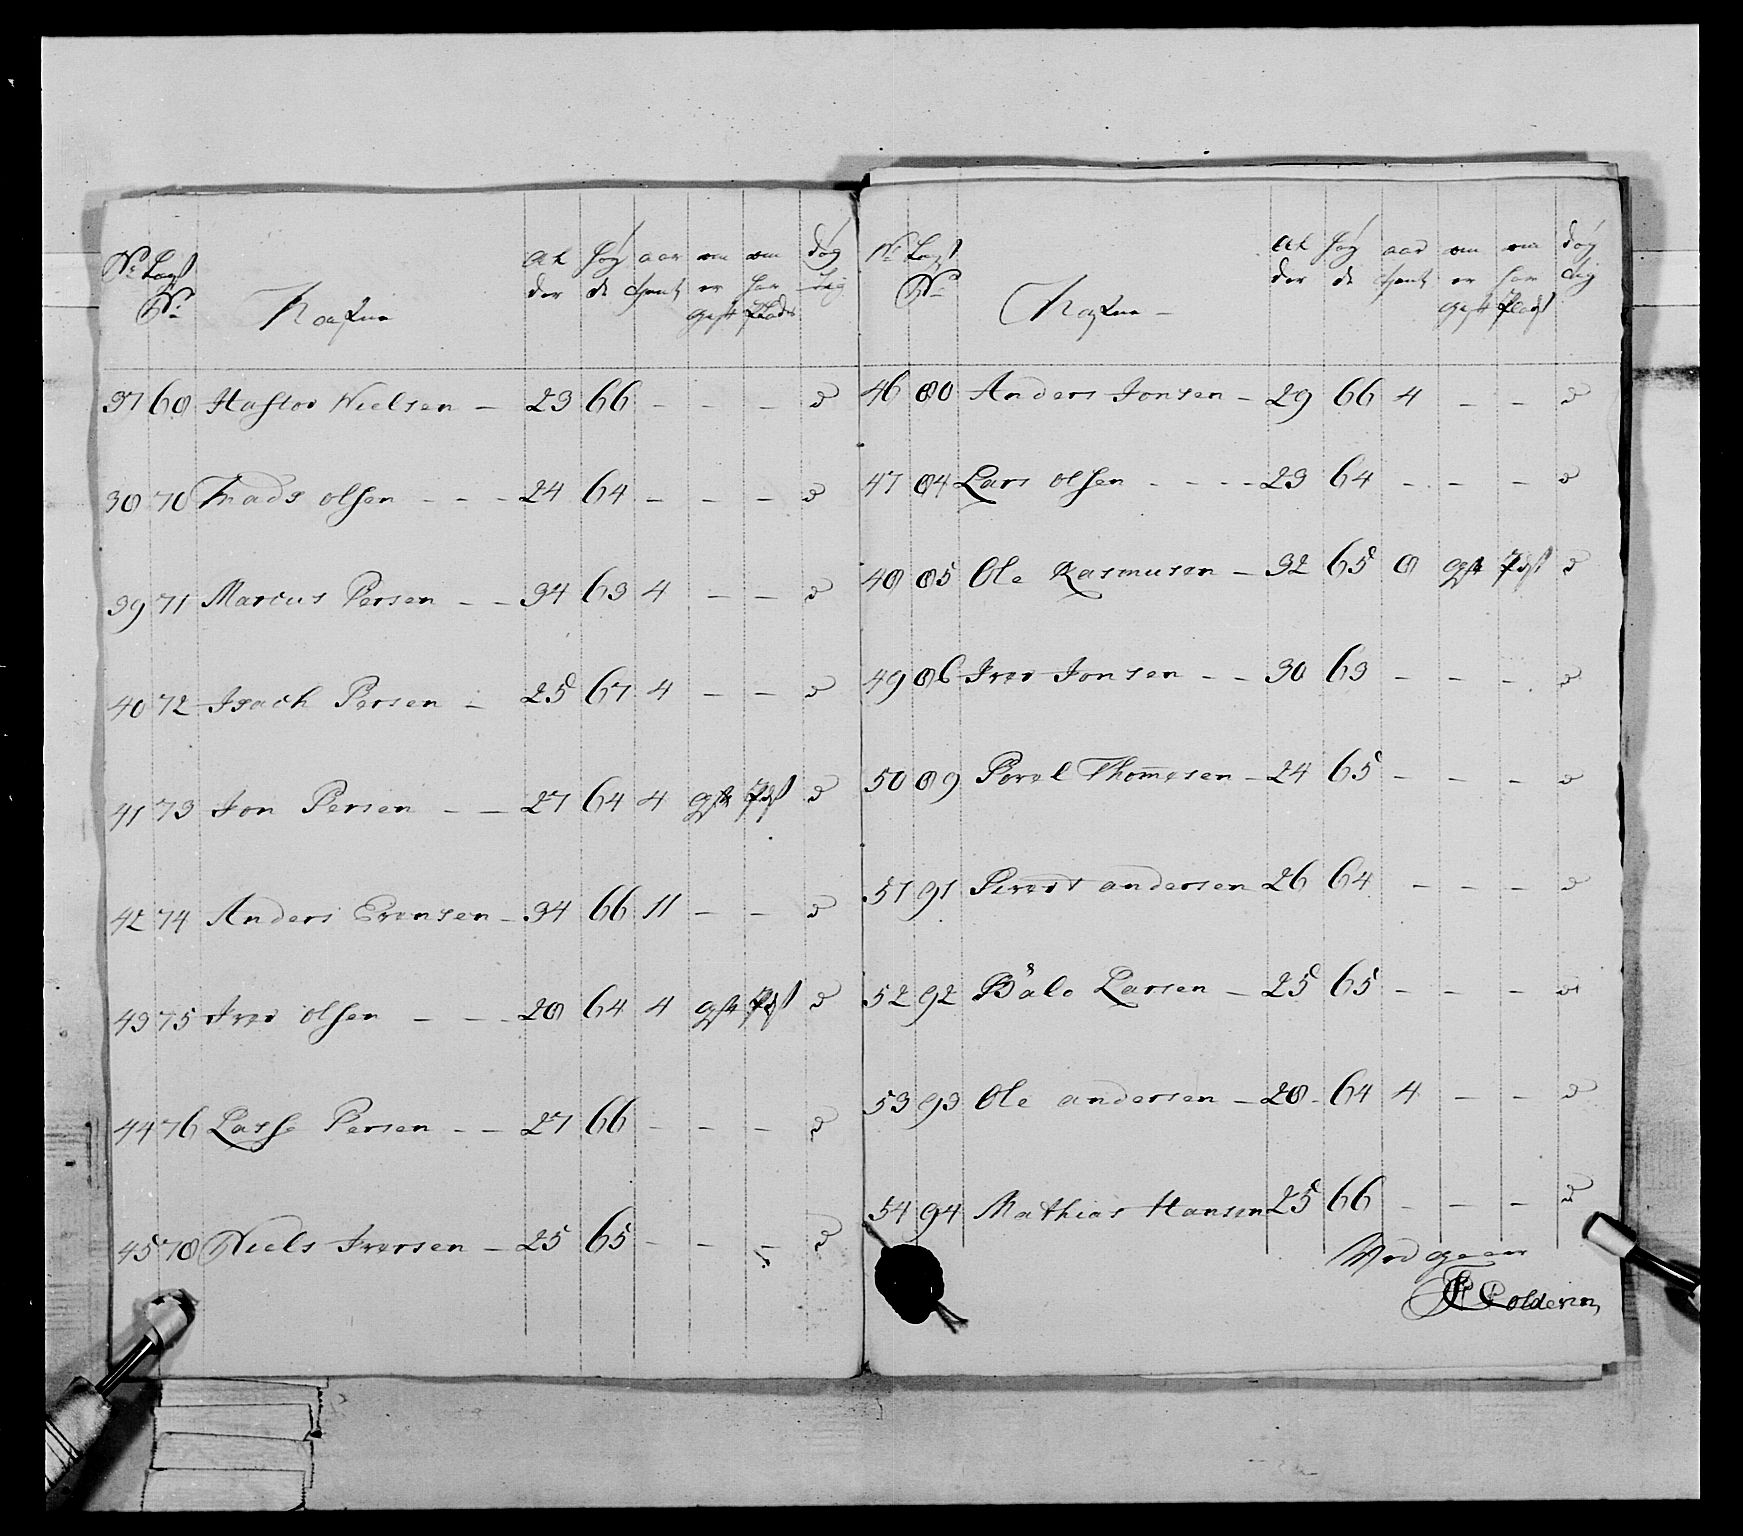 No Lægt
No
Nafne
al der
høg de
aar tient
om er gift
om har Pladst
dog tig
37 68 Haftor Nielsen — 23 66 — — — d
38 70 Mads olsen — — — 24 64 — — — d
39 71 Marcus Persen — — 34 63 4 — — d
40 72 Isach Persen — 25 67 4 — — d
41 73 Jon Persen — — 27 64 4 gift Pdst d
42 74 Anders Evensen — 34 66 11 — — d
43 75 Iver olsen — — — 28 64 4 gift Pdst d
44 76 Lasse Persen — — 27 66 — — — d
45 78 Niels Iversen — 25 65 — — — d
No Lægst
No
Nafne —
al der
høg de
aar tient
om er gift
om har Pladst
dog tig
46 80 Anders Jonsen — 29 66 4 — — d
47 84 Lars olsen — — — — 23 64 — — — d
48 85 Ole Rasmusen — 32 65 8 gift Pdst d
49 86 Iver Jonsen — — 30 63 — — — d
50 89 Povel Thomesen — 24 65 — — — d
51 91 Sivert andersen 26 64 — — — d
52 92 Bale Larsen — 25 65 — — — d
53 93 Ole andersen — 28 — 64 4 — — d
54 94 Mathias Hansen 25 66 — — — d
Ved gaaer
Coldevin,